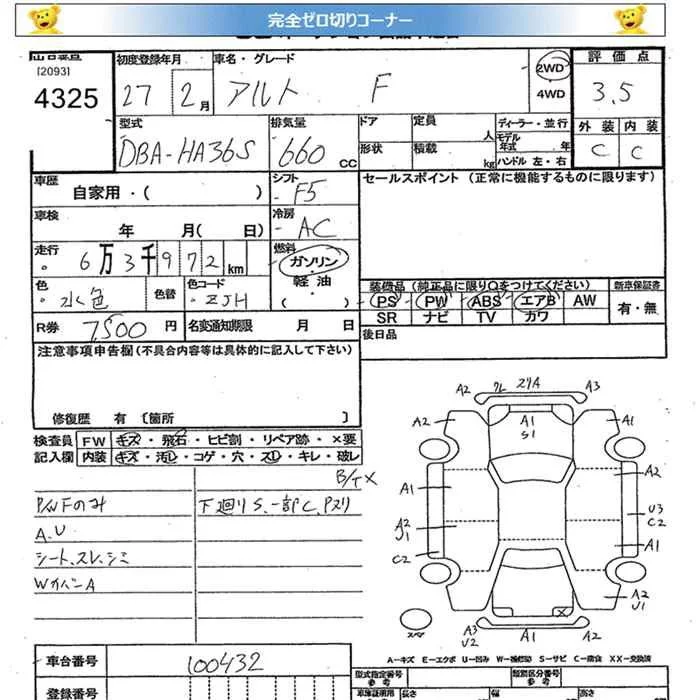 完全ゼロ切りコーナー
[2093]
4325
初度登録年月
27 2月
車名・グレード
アルト F
2WD
4WD
評価点
3.5
型式
DBA-HA36S
排気量
660 CC
ドア
定員
人
ディーラー・並行
形状
積載
kg
モデル年式 年
ハンドル 左・右
外装 内装
C C
車歴
自家用・( )
シフト
F5
セールスポイント (正常に機能するものに限ります)
車検
年 月( 日)
冷房
AC
走行
6万3千972 km
燃料
ガソリン
軽油
( )
色
水色
色替
色コード
ZJH
装備品 (純正品に限り○をつけてください)
新車保証書
PS PW ABS エアB AW
有・無
SR ナビ TV カワ
R券
7,500 円
名変通知期限 月 日
後日品
注意事項申告欄(不具合内容等は具体的に記入して下さい)
修復歴 有 〔箇所 〕
検査員記入欄
FW キズ・飛石・ヒビ割・リペア跡・×要
内装 キズ・汚レ・コゲ・穴・スレ・キレ・破レ
B/TX
P/W Fのみ
下廻りS、一部C、Pヌリ
A.U
シート、スレ、シミ
WカバーA
A2 A3
A2 A1 S1 A1
A1 A2
A2 U1 U3 C2
C2 A1
A2 U1
スペア
A3 U2 A1 A2
A-キズ E-エクボ U-凹み W-補修跡 S-サビ C-腐食 XX-交換済
車台番号
100432
登録番号
型式指定番号 参考
類別区分番号 参考
長さ
幅
高さ